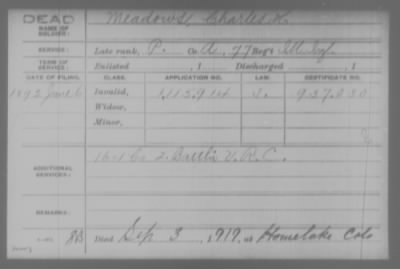 DEAD
NAME OF SOLDIER:
Meadows, Charles H.
SERVICE:
Late rank, P. Co. A, 77 Reg't Ill. Inf.
TERM OF SERVICE:
Enlisted , 1 Discharged , 1
DATE OF FILING. CLASS. APPLICATION NO. LAW. CERTIFICATE NO.
1892 June 6 Invalid, 1,115,914 937,030
Widow,
Minor,
ADDITIONAL SERVICES:
16-1 Co 2. Batt'n V.R.C.
REMARKS:
Died Sep 3, 1919, at Homelake Colo